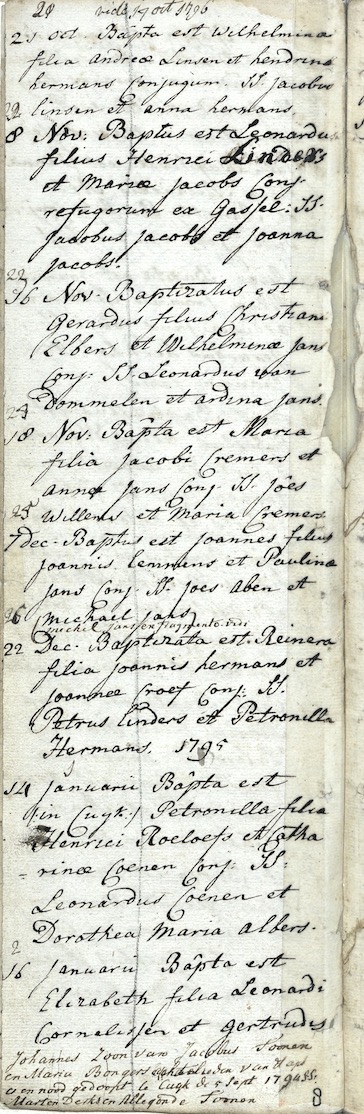 21 vide 19 oct 1796
21 oct. Bapta est Wilhelmina
filia Andreæ Linsen et hendrina
hermans Conjugum. SS. Jacobus
22 linsen et anna hermans
8 Nov: Baptus est Leonardus
filius Henrici Linders
et Mariæ Jacobs Conj.
refugorum ex Gassel: SS.
Jacobus Jacobs et Joanna
Jacobs.
23
16 Nov. Baptizatus est
Gerardus filius Christiani
Elbers et Wilhelminæ Jans
Conj: SS Leonardus van
Dommelen et ardina Jans.
24
18 Nov: Bapta est Maria
filia Jacobi Cremers et
annæ Jans Conj. SS. Joes
25 Willems et Maria Cremers
7 dec. Baptus est Joannes filius
Joannis lemmens et Paulinæ
Jans Conj. SS. Joes Aben et
26 Michail Jans
michil Jans en fragmento vidi
22 Dec. Baptizata est Reinera
filia Joannis hermans et
Joannæ Croef Conj: SS.
Petrus linders et Petronilla
Hermans. 1795
1
14 Januarii Bapta est
(in Cuyk:) Petronilla filia
Henrici Roeloefs et Catha
rinæ Coenen Conj: SS:
Leonardus Coenen et
Dorothea Maria Albers.
2
16 Januarii Bapta est
Elizabeth filia Leonardi
Cornelissen et gertrudis
Johannes Zoon van Jacobus Toonen
en Maria Bongers echtelieden van Haps
is en nord gedoopt te Cuyk de 5 sept 1794 SS.
Marten Derksen Allegonde Toonen
8